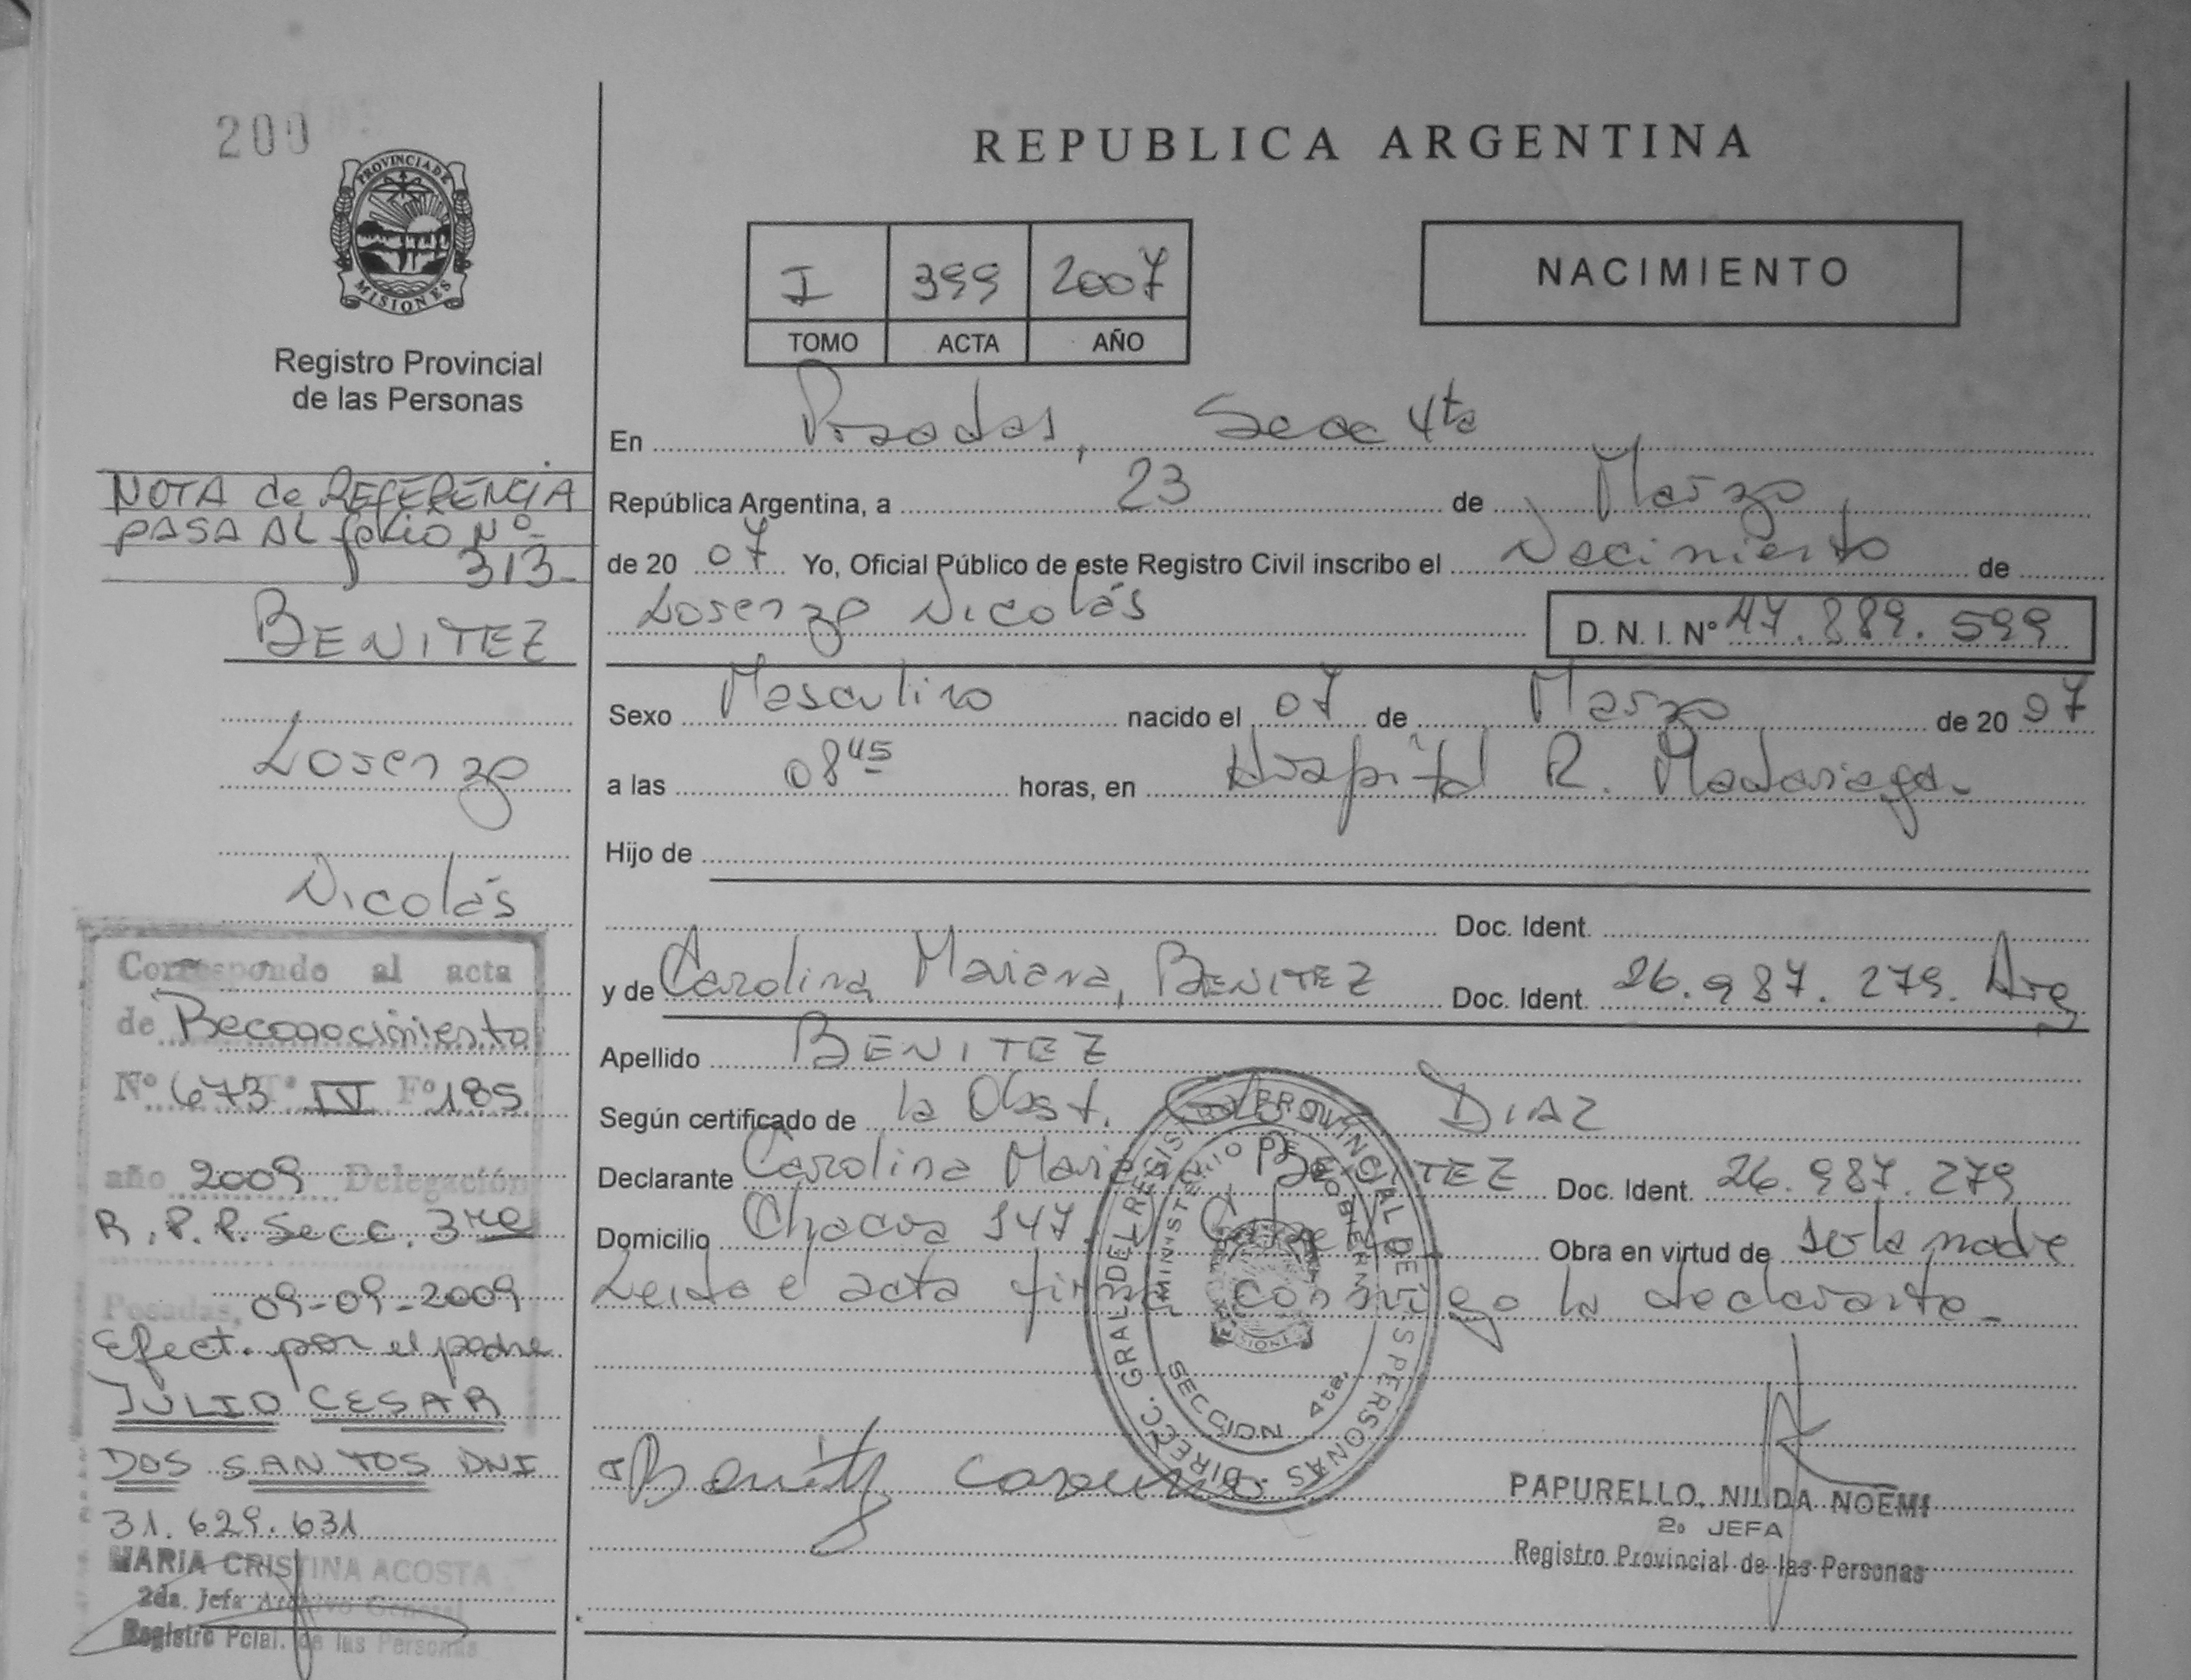 200
PROVINCIA DE
MISIONES
Registro Provincial
de las Personas
NOTA de REFERENCIA
PASA AL folio Nº
313-
BENITEZ
Lorenzo
Nicolás
Corresponde al acta
de Reconocimiento
Nº 673 Tº IV Fº 185
año 2009 Delegación
R.P.P. Secc. 3ra
Posadas, 09-09-2009
Efect. por el padre
JULIO CESAR
DOS SANTOS DNI
31.629.631
MARIA CRISTINA ACOSTA
2da. Jefa Archivo General
Registro Pcial. de las Personas
REPUBLICA ARGENTINA
I 399 2007
TOMO ACTA AÑO
NACIMIENTO
En Posadas, Secc 4ta
República Argentina, a 23 de Marzo
de 20 07 Yo, Oficial Público de este Registro Civil inscribo el Nacimiento de
Lorenzo Nicolás D. N. I. Nº 47.889.599
Sexo Masculino nacido el 07 de Marzo de 20 07
a las 08 45 horas, en Hospital R. Madariaga-
Hijo de
Doc. Ident.
y de Carolina Mariana, BENITEZ Doc. Ident. 26.987.279. Arg
Apellido BENITEZ
Según certificado de la Obst. DIAZ
Declarante Carolina Mariana BENITEZ Doc. Ident. 26.987.279
Domicilio Chacra 147. Obra en virtud de ser la madre
Leida el acta firma conmigo la declarante-
DIRECC. GRAL. DEL REGISTRO PROVINCIAL DE LAS PERSONAS
MINISTERIO DE GOBIERNO
MISIONES
SECCION 4ta.
Benitez Carolina
PAPURELLO, NILDA NOEMI
2º JEFA
Registro Provincial de las Personas